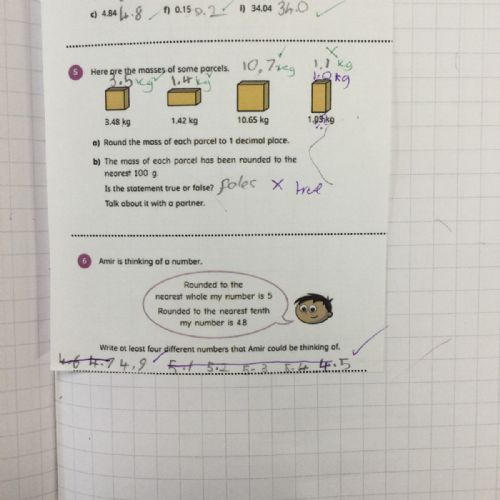 c) 4.84 4.8 f) 0.15 0.2 i) 34.04 34.0
5 Here are the masses of some parcels. 10.7 kg 1.1 kg
3.5 kg 1.4 kg 1.0 kg
3.48 kg 1.42 kg 10.65 kg 1.05 kg
a) Round the mass of each parcel to 1 decimal place.
b) The mass of each parcel has been rounded to the
nearest 100 g.
Is the statement true or false? foles x true
Talk about it with a partner.
6 Amir is thinking of a number.
Rounded to the
nearest whole my number is 5
Rounded to the nearest tenth
my number is 4.8
Write at least four different numbers that Amir could be thinking of.
4.6 4.7 4.9 5.1 5.2 5.3 5.4 4.5